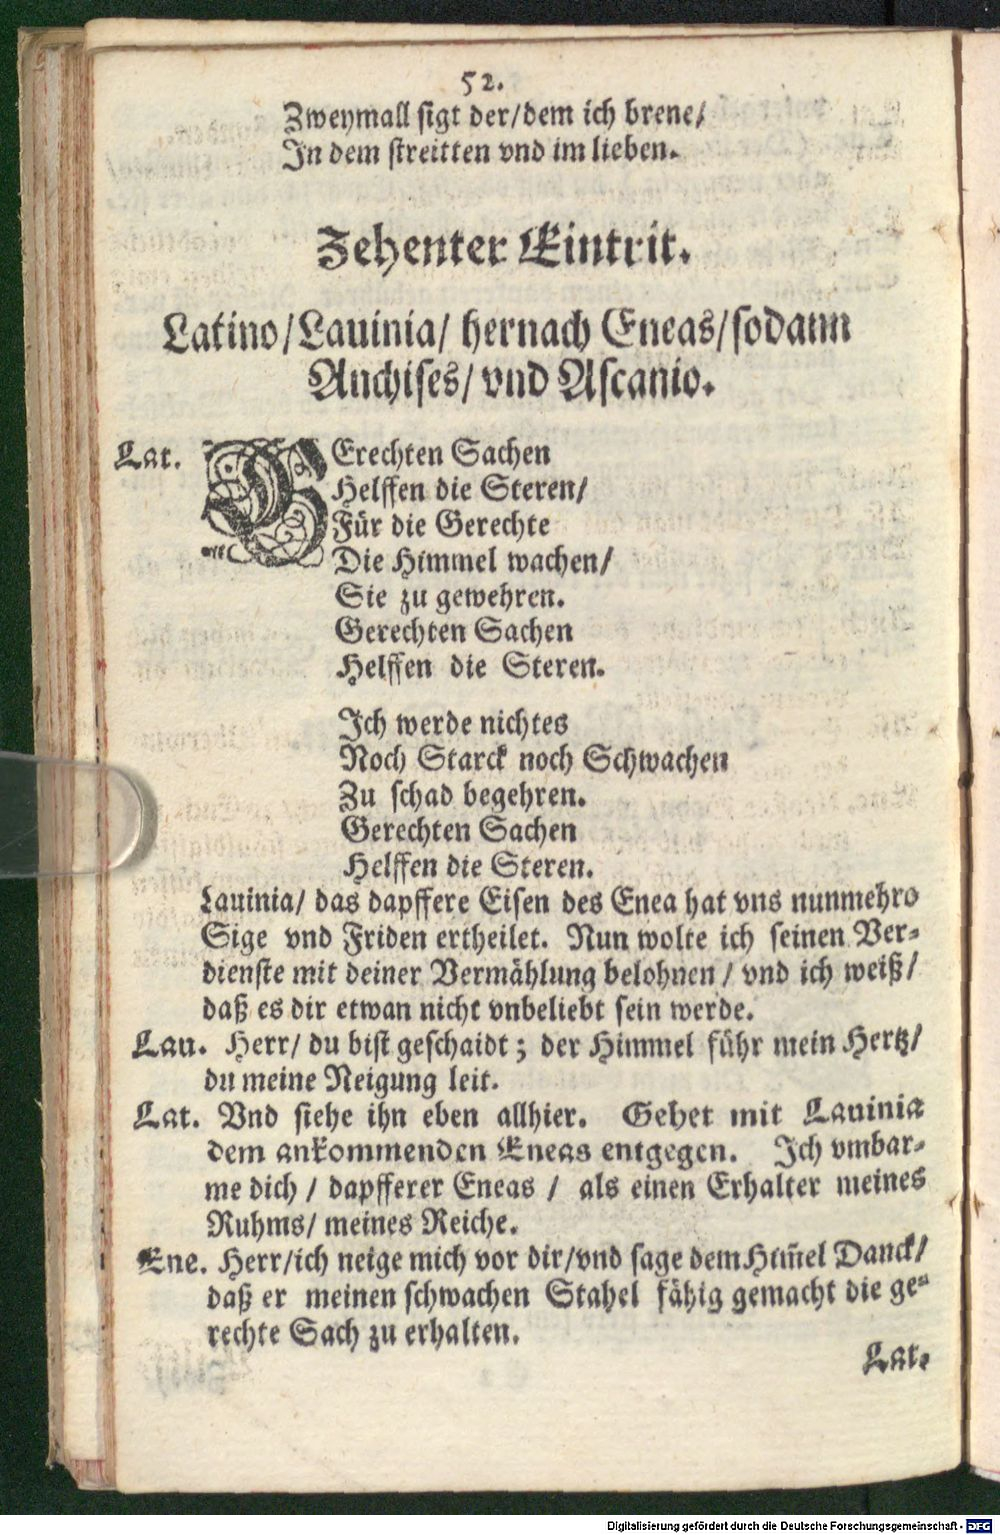 52.
Zweymall sigt der/dem ich brene/
In dem streitten vnd im lieben.
Zehenter Eintrit.
Latino/Lauinia/ hernach Eneas/sodann
Anchises/ vnd Ascanio.
Lat. GErechten Sachen
Helffen die Steren/
Für die Gerechte
Die Himmel wachen/
Sie zu gewehren.
Gerechten Sachen
Helffen die Steren.
Ich werde nichtes
Noch Starck noch Schwachen
Zu schad begehren.
Gerechten Sachen
Helffen die Steren.
Lauinia/ das dapffere Eisen des Enea hat vns nunmehro
Sige vnd Friden ertheilet. Nun wolte ich seinen Ver-
dienste mit deiner Vermählung belohnen / vnd ich weiß/
daß es dir etwan nicht vnbeliebt sein werde.
Lau. Herr/ du bist geschaidt; der Himmel führ mein Hertz/
du meine Neigung leit.
Lat. Vnd siehe ihn eben allhier. Gehet mit Lauinia
dem ankommenden Eneas entgegen. Ich vmbar-
me dich / dapfferer Eneas / als einen Erhalter meines
Ruhms/ meines Reichs.
Ene. Herr/ich neige mich vor dir/vnd sage dem Him̃el Danck/
daß er meinen schwachen Stahel fähig gemacht die ge-
rechte Sach zu erhalten.
Lat.
Digitalisierung gefördert durch die Deutsche Forschungsgemeinschaft - DFG